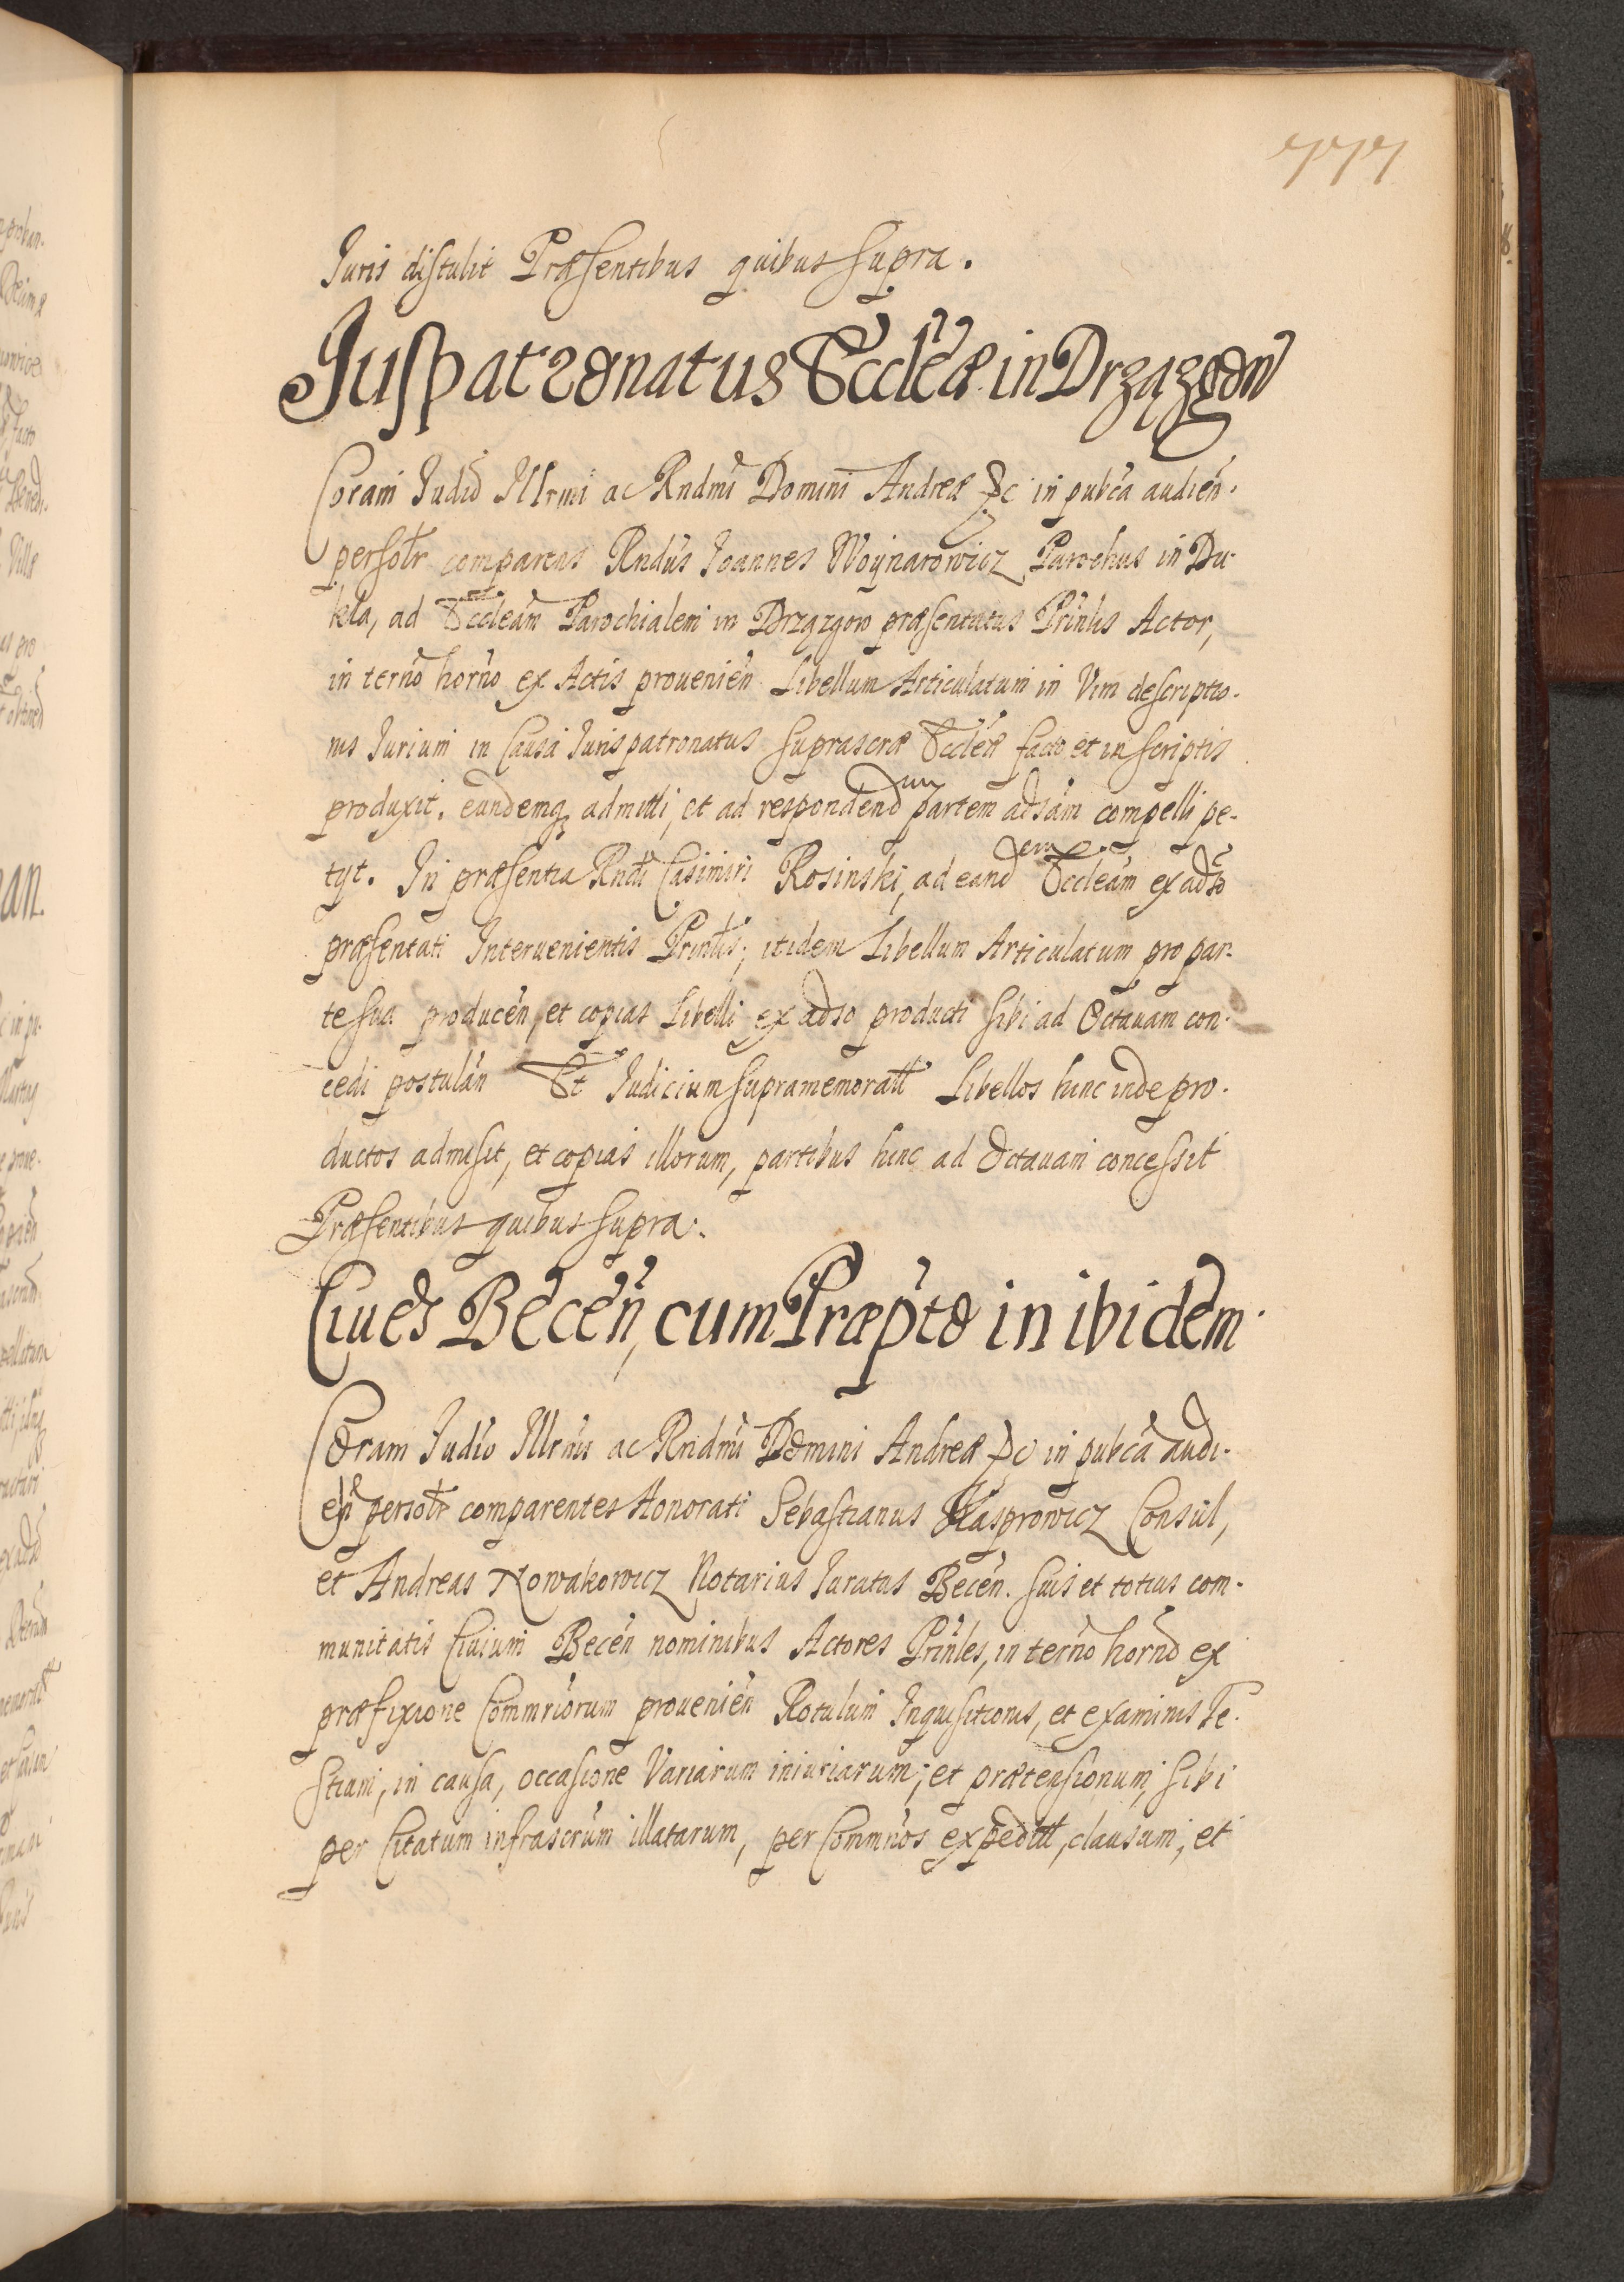 777
Juris distulit Præsentibus quibus supra.
Juspatronatus Eccleæ in Drzązgow
Coram Judio Illrmi ac Rndmi Domini Andreæ &c in pubca audien.
persolr comparens Rndus Joannes Woynarowicz Parochus in Du-
kla, ad Eccleam Parochialem in Drzązgow præsentatus Prinlis Actor,
in terno horno ex Actis provenien Libellum Articulatum in Vim descriptio-
nis Jurium in Causa Jurispatronatus suprascræ Eccleæ facto et in scriptis
produxit. eundemq admitti, et ad respondendum partem adsam compelli pe-
tyt. In præsentia Rndi Casimiri Rosinski, ad eandem Eccleam ex adso
præsentati Intervenientis Prinlis; itidem Libellum Articulatum pro par-
te sua producen, et copias Libelli ex adso producti sibi ad Octavam con-
cedi postulan Et Judicium supramemoratt Libellos hinc inde pro-
ductos admisit, et copias illorum, partibus hinc ad Octavam concessit
Præsentibus quibus supra.
Cives Becen, cum Præpto in ibidem.
Coram Judio Illrmi ac Rndmi Domini Andreæ &c in pubca audi-
en persolr comparentes Honorati Sebastianus Kasprowicz Consul,
et Andreas Nowakowicz Notarius Juratus Becen. suis et totius com-
munitatis Civium Becen nominibus Actores Prinles, in terno horno ex
præfixione Commriorum provenien Rotulum Inquisitionis, et examinis Te-
stium, in causa, occasione Variarum iniuriarum, et prætensionum, sibi
per Citatum infrascrum illatarum, per Commrios expeditt, clausum, et